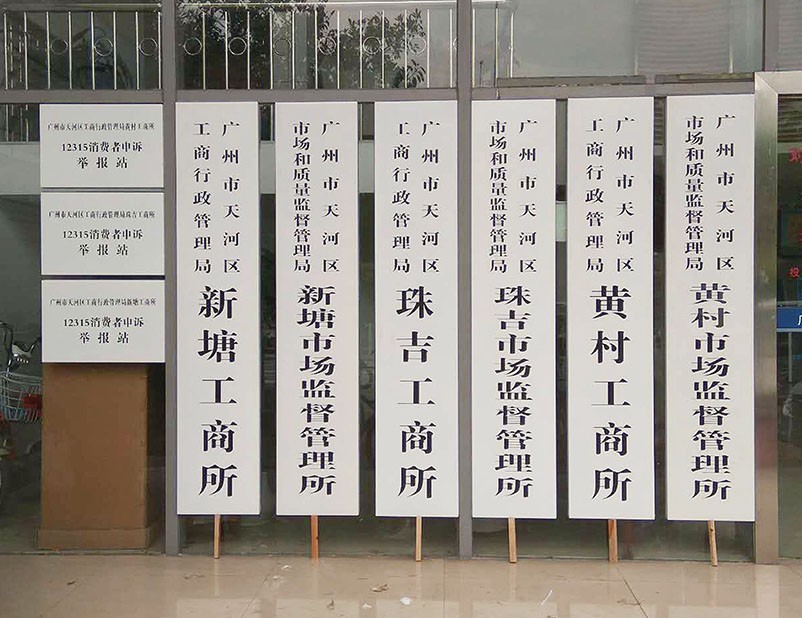 广州市天河区工商行政管理局黄村工商所
12315消费者申诉
举报站
广州市天河区工商行政管理局珠吉工商所
12315消费者申诉
举报站
广州市天河区工商行政管理局新塘工商所
12315消费者申诉
举报站
广州市天河区
工商行政管理局
新塘工商所
广州市天河区
市场和质量监督管理局
新塘市场监督管理所
广州市天河区
工商行政管理局
珠吉工商所
广州市天河区
市场和质量监督管理局
珠吉市场监督管理所
广州市天河区
工商行政管理局
黄村工商所
广州市天河区
市场和质量监督管理局
黄村市场监督管理所